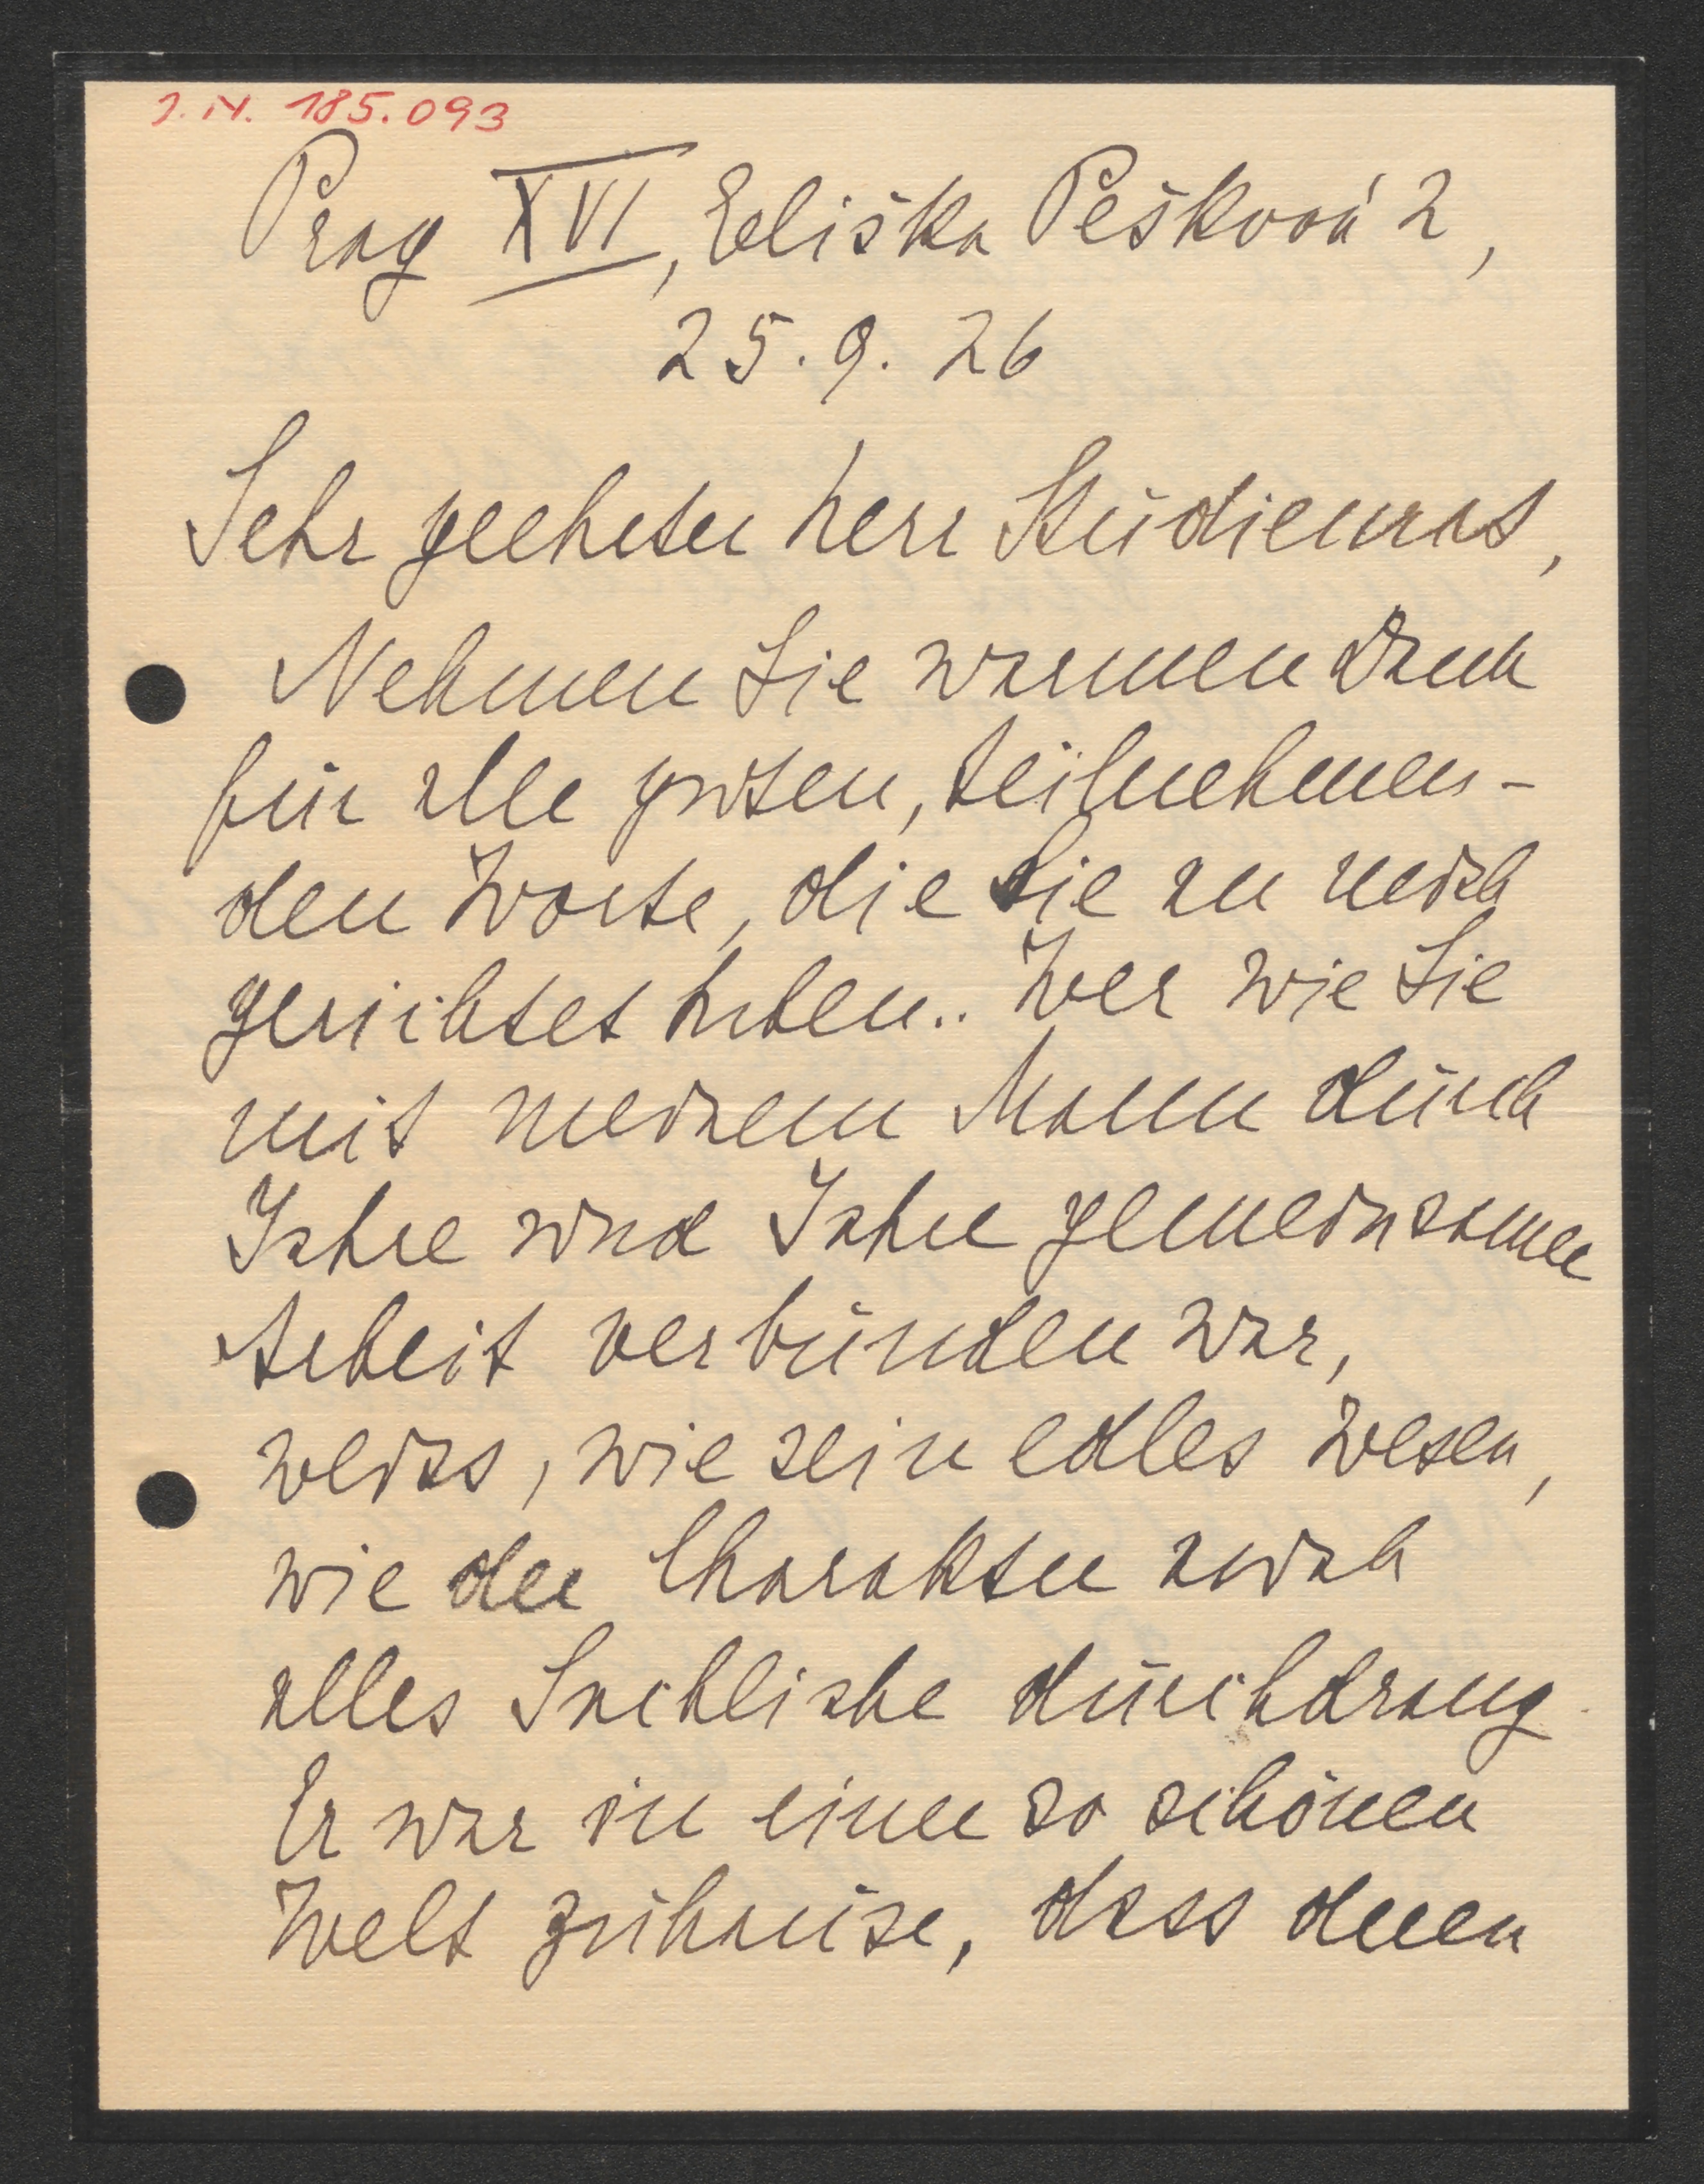 J.N. 185.093
Prag XVI, Eliška Pešková 2,
25. 9. 26
Sehr geehrter Herr Studienrat,
Nehmen Sie warmen Dank
für alle guten, teilnehmen-
den Worte, die Sie an mich
gerichtet haben.. Wer wie Sie
mit meinem Mann durch
Jahre und Jahre gemeinsamer
Arbeit verbunden war,
weiss, wie sein edles Wesen,
wie der Charakter auch
alles Sachliche durchdrang.
Er war in einer so schönen
Welt zuhause, dass deren